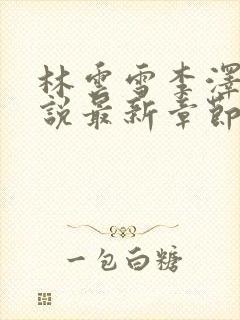 林雲雪李澤
說最新章節
一包白糖